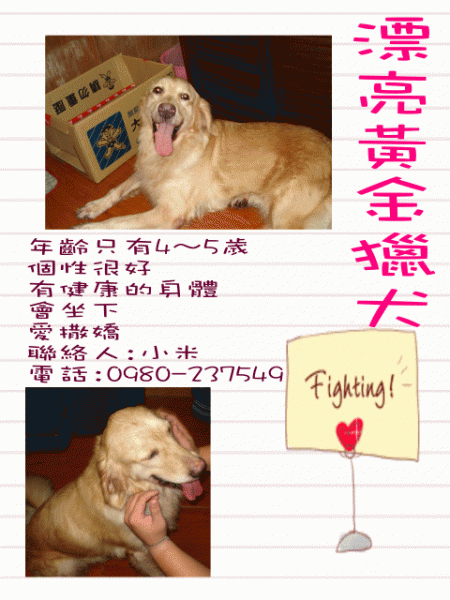 漂亮黃金獵犬
請勿重壓
大
年齡只有4～5歲
個性很好
有健康的身體
會坐下
愛撒嬌
聯絡人:小米
電話:0980-237549
Fighting!